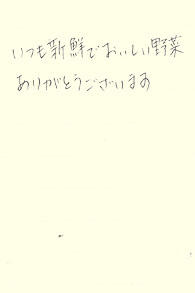 いつも新鮮でおいしい野菜
ありがとうございます